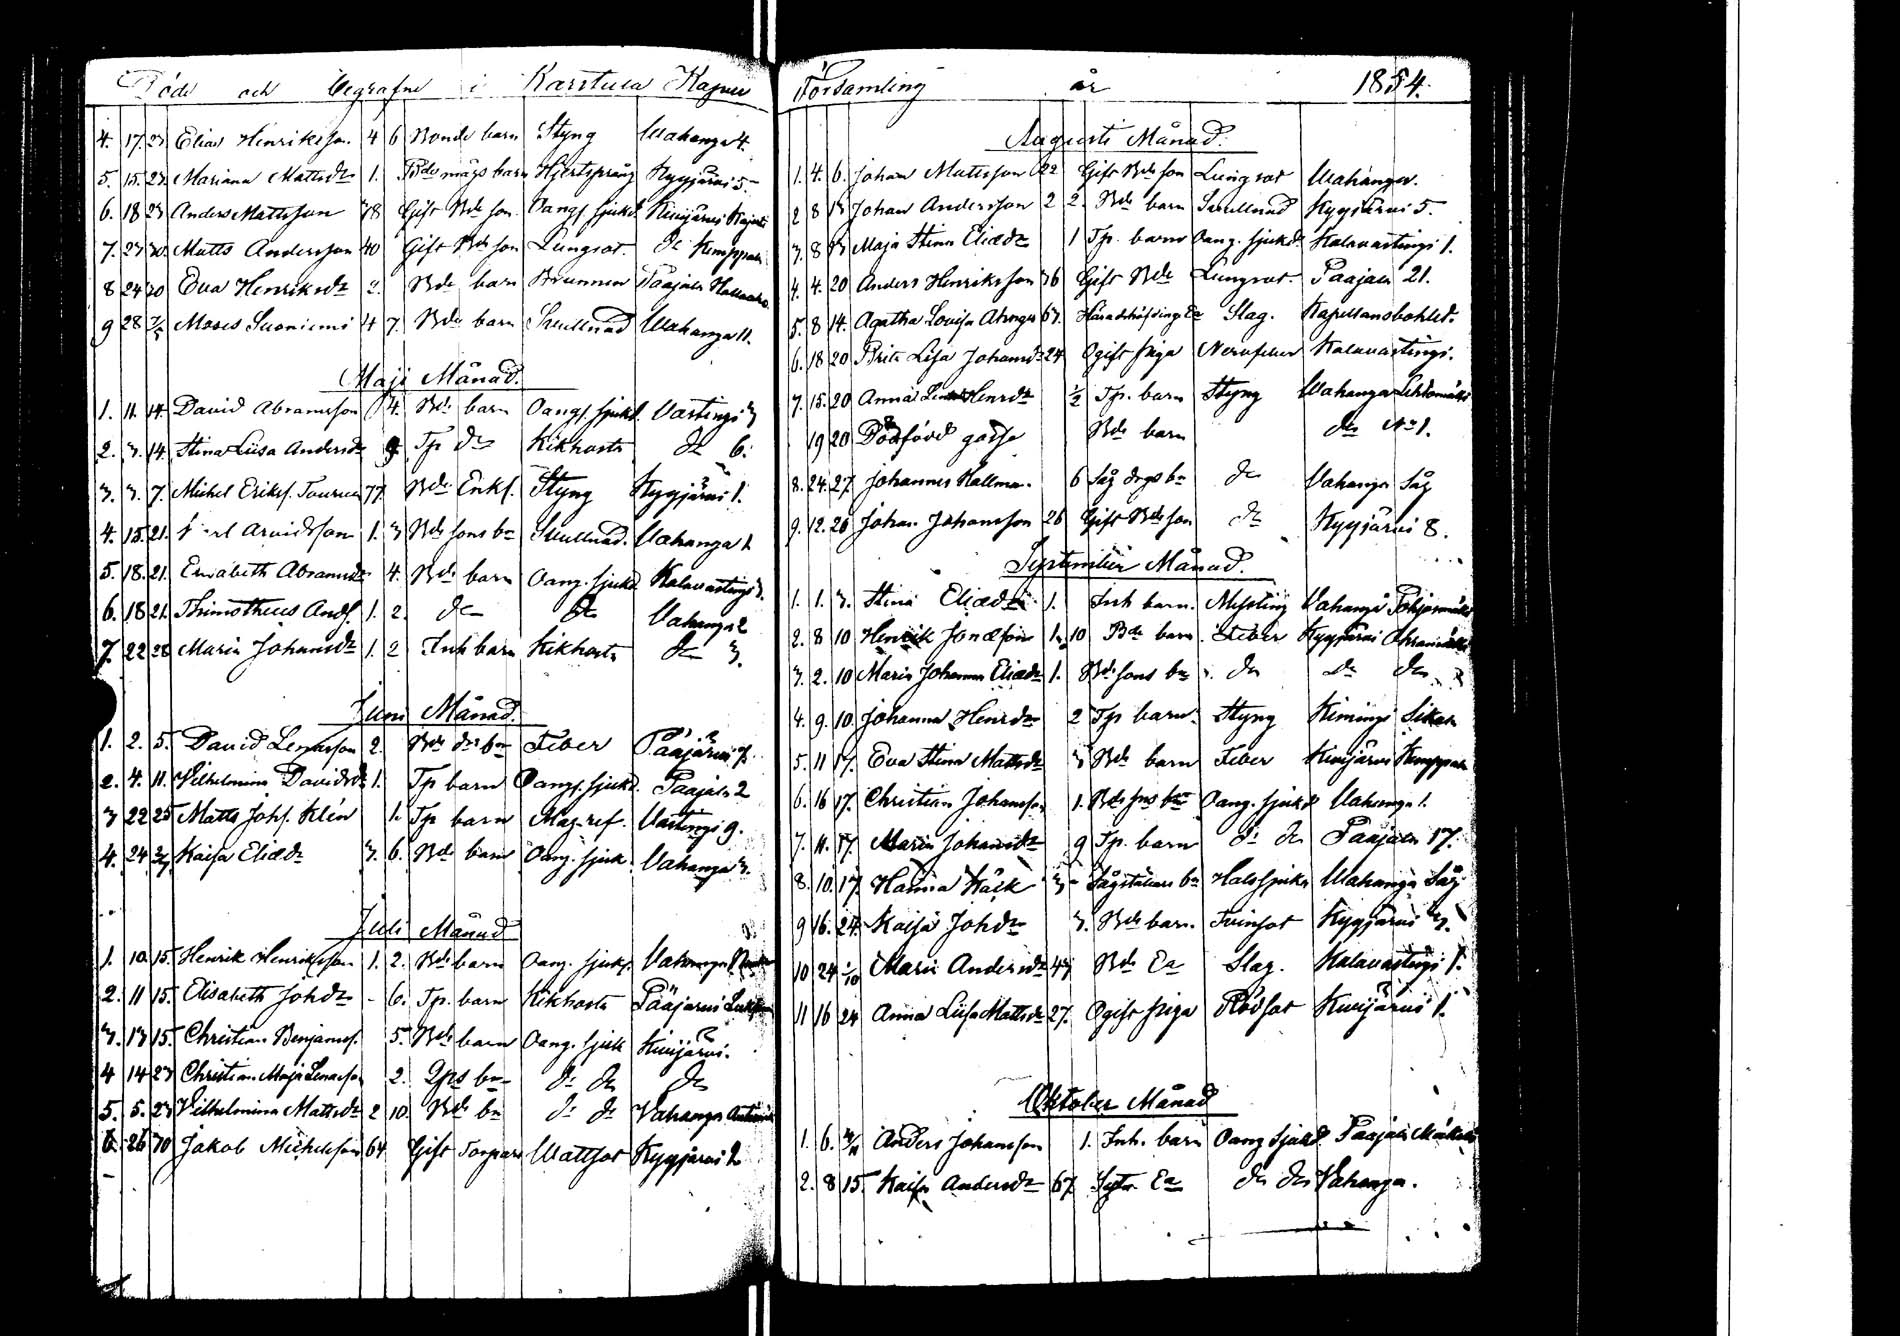 Döde och begrafne i Karstula Kapell
4. 17. 23 Elias Henriksson 4 6 Bonde barn Styng Wahanga 4.
5. 15. 23. Mariana Mattsdr 1. Bde mågs barn Hjertsprång Kyyjärvi 5.
6. 18 23 Anders Mattsson 78 Gift Bde son Oang. sjukd. Kiwijärvi
7. 23 30. Matts Andersson 40 Gift Bde son Lungsot. do Kemppain
8 24 30 Eva Henriksdr 2. Bde barn Brunnen Paajala
9 28 7/5 Moses Suoniemi 4 7. Bde barn Skullnad Wahanga 11.
Maji Månad.
1. 11. 14. David Abramsson 4. Bde barn Oang. sjukd. Vastingi 3
2. 3. 14. Stina Liisa Andersdr 9 Tp do Kikhosta do 6.
3. 3. 7. Michel Eriks. 77. Bde Enkl. Styng Kyyjärvi 1.
4. 15. 21. Arvidsson 1. 3 Bde sons bn Skullnad. Vahanga 1
5. 18. 21. Elisabeth Abramsdr 4. Bde barn Oang. sjukd. Kalavastingi 3.
6. 18 21. Thimotheus Ands. 1. 2. do do Vahanga 2
7. 22 28 Maria Johansdr 1. 2 Inh barn Kikhosta do 3.
Juni Månad.
1. 2. 5. David Lenasson 2. Bde drs bn Feber Pääjärvi 7.
2. 4. 11. Vilhelmina Davidsdr 1. Tp barn Oang. sjukd. Paajala 2
3 22 25 Matts Johs. Klén 1. Tp barn Mag. ref. Vastingi 9.
4. 24 2/7 Kaisa Eliædr 3. 6. Bde barn Oang. sjuk. Vahanga 3.
Juli Månad
1. 10. 15. Henrik Henriksson 1. 2. Bde barn Oang. sjukd. Vahanga
2. 11 15. Elisabeth Johdr - 6. Tp. barn Kikhosta Pääjärvi
3. 13 15. Christian Benjamss. 5. Bde barn Oang. sjuk Kiwijärvi.
4 14 23 Christian Maja Lenasson 2. Qps bn do do do
5. 5. 23 Vilhelmina Mattsdr 2 10. Bde bn do do Vahanga
6. 26 30 Jakob Michelsson 64 Gift Torpare Wattsot Kyyjärvi 2
Församling år 1854.
Augusti Månad.
1. 4. 6. Johan Mattsson 22 Gift Bde son Lungsot Wahanga.
2 8 13 Johan Andersson 2 2. Bde barn Skullnad Kyyjärvi 5.
3. 8 13 Maja Stina Eliædr 1 Tp. barn Oang. sjukd. Kalavastingi 1.
4. 4. 20 Anders Henriksson 36 Gift Bde Lungsot. Paajala 21.
5. 8 14. Agatha Lovisa 63. Häradshöfding Ea Slag. Kapellansbohlet.
6. 18 20 Brita Lisa Johansdr 24 Ogift piga Nervfeber Kalavastingi.
7. 15. 20 Anna Lena Henrdr ½ Tp. barn Styng Wahanga Lehtomäki
19 20 Dödfödd gosse Bde barn do No 1.
8. 24. 27. Johannes Hallman. 6 Såg drgs bn do Vahanga Såg
9. 12. 26 Johan Johansson 26 Gift Bde son do Kyyjärvi 8.
September Månad.
1. 1. 3. Stina Eliædr 1. Inh barn. Messling Vahanga Pohjosmäki
2. 8 10 Henrik Jonæson 1. 10 Bde barn Feber Kyyjärvi
3. 2. 10 Maria Johanna Eliædr 1. Bde sons bn do do do
4. 9. 10. Johanna Henrdr 2 Tp barn. Styng Kimingi
5. 11 17. Eva Stina Mattsdr 3 Bde barn Feber Kiwijärvi Kemppain
6. 16 17. Christian Johansson 1. Bde sns bn Oang. sjukd Vahanga 1.
7. 11. 17. Maria Johansdr 9 Tp. barn do do Paajala 17.
8. 10. 17. Hanna Käck 3 Sågställare bn Halssjuka Wahanga Såg
9 16. 24. Kaisa Johdr 3. Bde barn. Tvinsot Kyyjärvi 3.
10 24 1/10 Maria Andersdr 43 Bde Ea Slag. Kalavastingi 1.
11 16 24 Anna Liisa Mattsdr 27. Ogift piga Rödsot Kiwijärvi 1.
Oktober Månad
1. 6. Anders Johansson 1. Inh. barn Oang Sjukd Paajala
2. 8 15. Kaisa Andersdr 67. Sytn. Ea do do Vahanga.